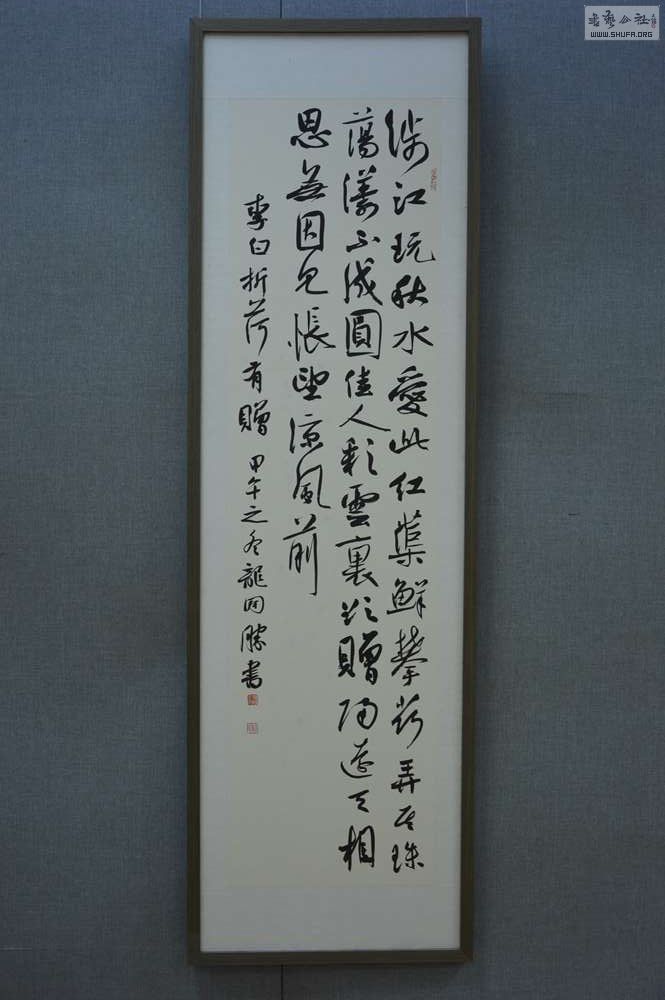 涉江玩秋水愛此紅蕖鮮攀荷弄其珠
蕩漾不成圓佳人彩雲裏欲贈隔遠天相
思無因見悵望涼風前
李白折荷有贈 甲午之冬龍開勝書
書藝公社
WWW.SHUFA.ORG